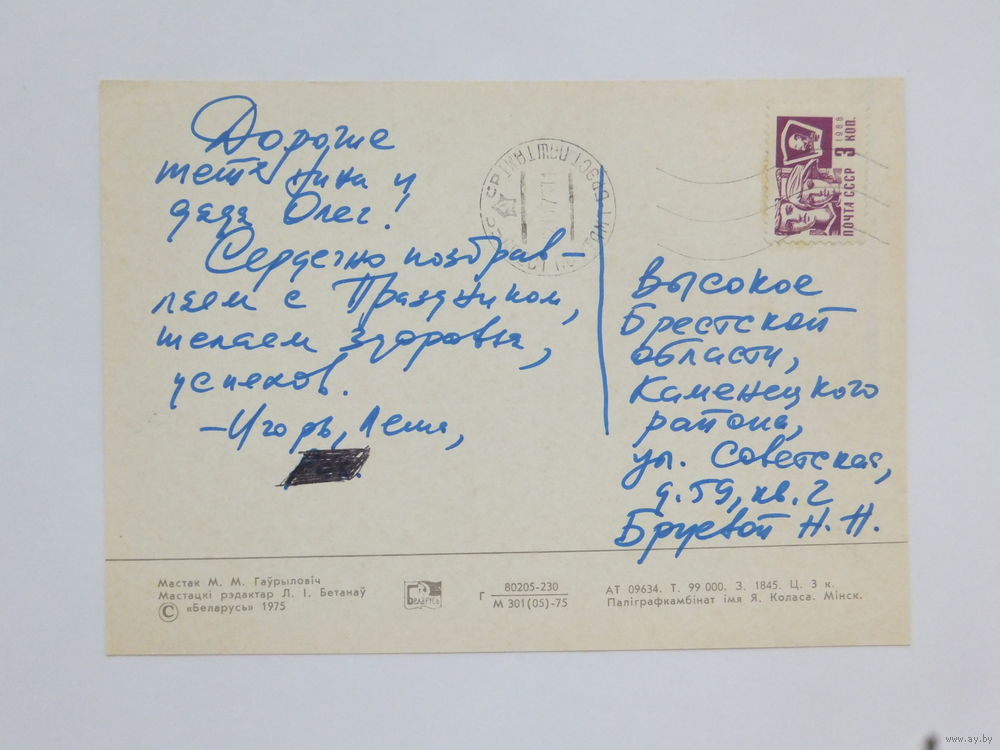 Дорогие
тетя Нина и
дядя Олег!
Сердечно поздрав-
ляем с Праздником,
желаем здоровья,
успехов.
–Игорь, Леша,
1966
3 коп.
ПОЧТА СССР
Высокое
Брестской
области,
Каменецкого
района,
ул. Советская,
д. 59, кв. 2
Бруевой Н. Н.
Мастак М. М. Гаўрыловіч
Мастацкі рэдактар Л. І. Бетанаў
© «Беларусь» 1975
БЕЛАРУСЬ
Г 80205-230
М 301(05)-75
АТ 09634. Т. 99 000. З. 1845. Ц. 3 к.
Паліграфкамбінат імя Я. Коласа. Мінск.
www.ay.by